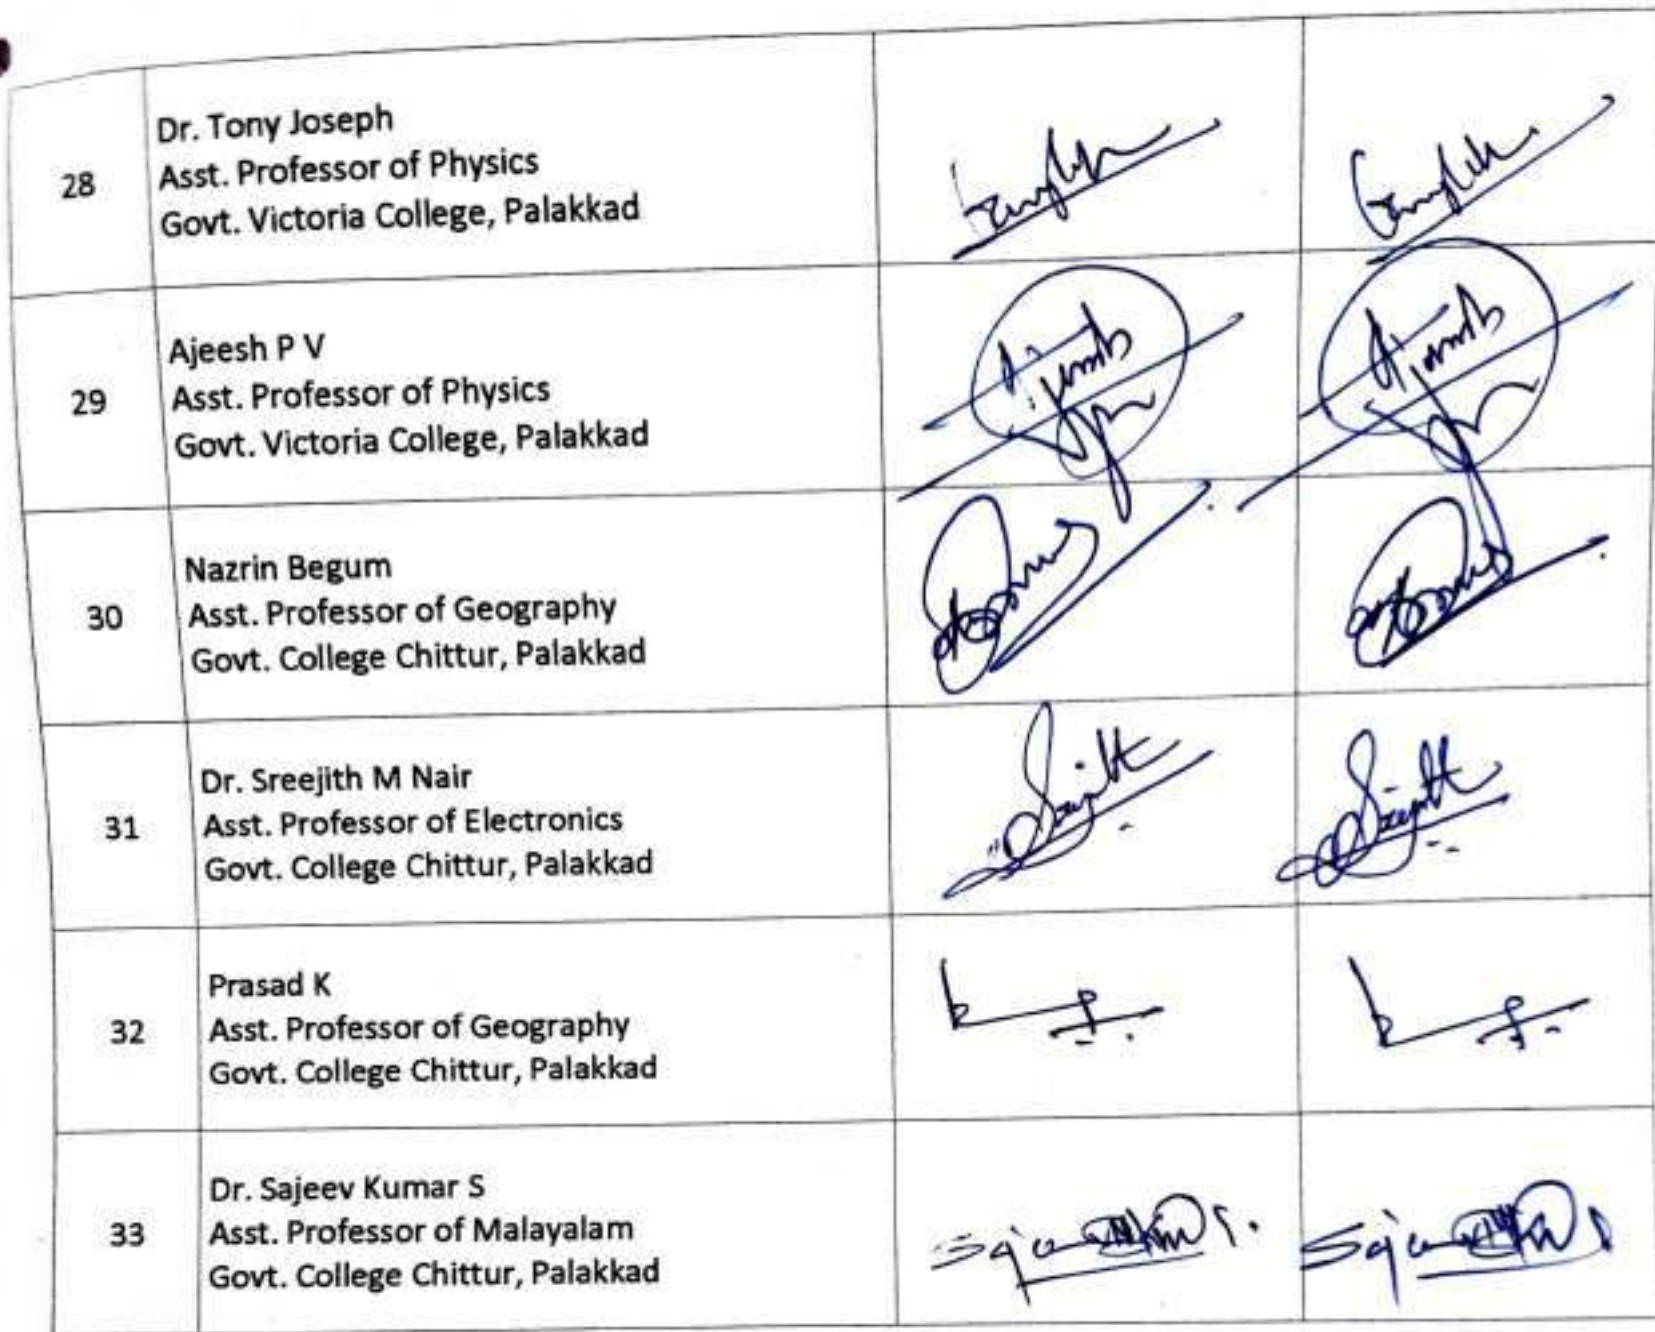 28
Dr. Tony Joseph
Asst. Professor of Physics
Govt. Victoria College, Palakkad
29
Ajeesh P V
Asst. Professor of Physics
Govt. Victoria College, Palakkad
30
Nazrin Begum
Asst. Professor of Geography
Govt. College Chittur, Palakkad
31
Dr. Sreejith M Nair
Asst. Professor of Electronics
Govt. College Chittur, Palakkad
32
Prasad K
Asst. Professor of Geography
Govt. College Chittur, Palakkad
33
Dr. Sajeev Kumar S
Asst. Professor of Malayalam
Govt. College Chittur, Palakkad